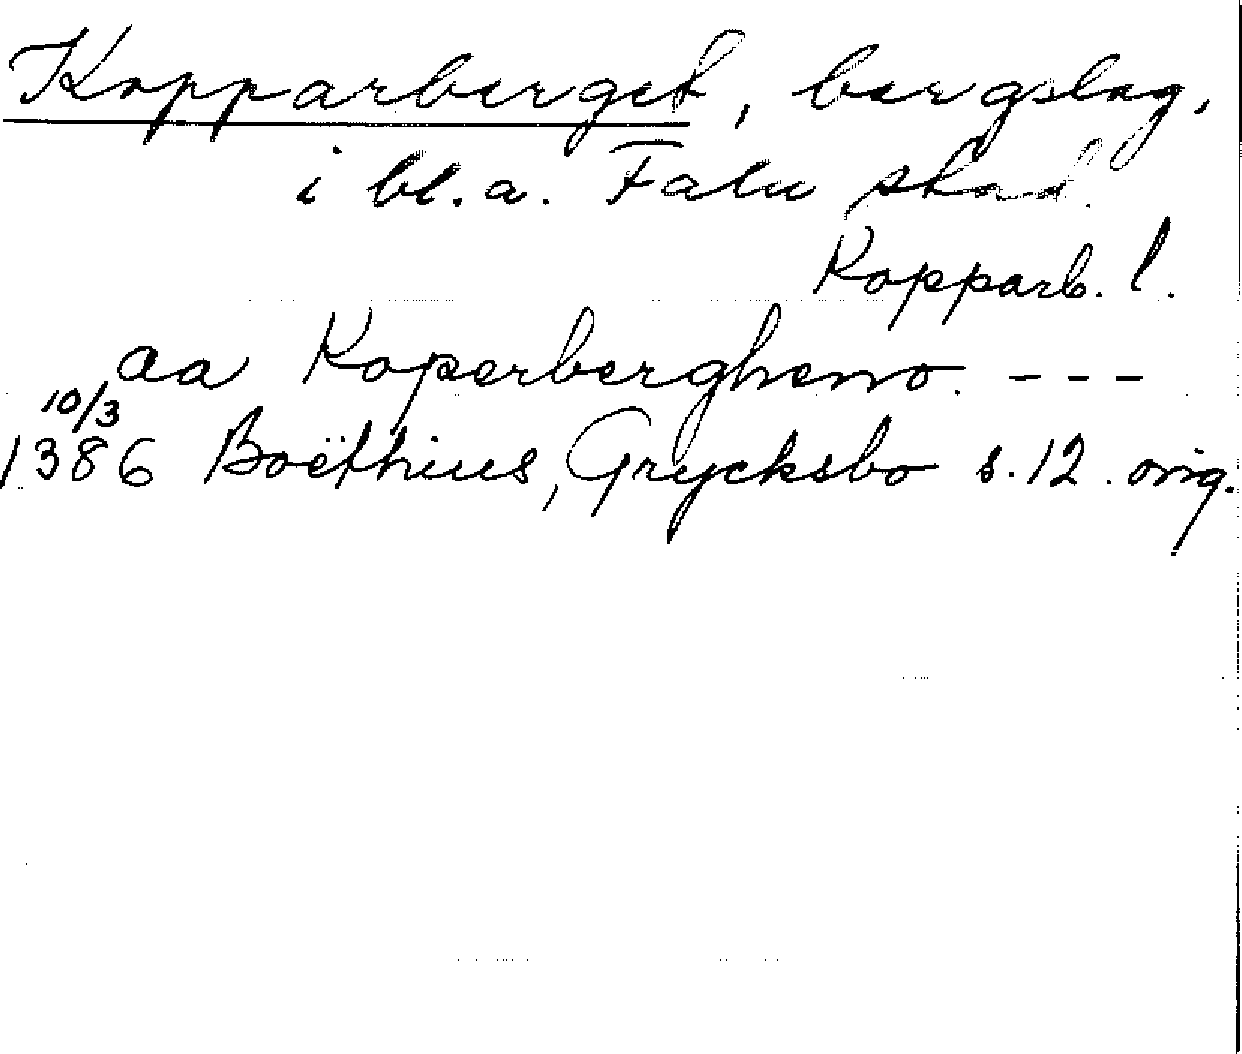 Kopparberget, bergslag,
i bl.a. Falu stad.
Kopparb. l.
aa Koperbergheno. ---
10/3
1386 Boëthius, Grycksbo s. 12. orig.